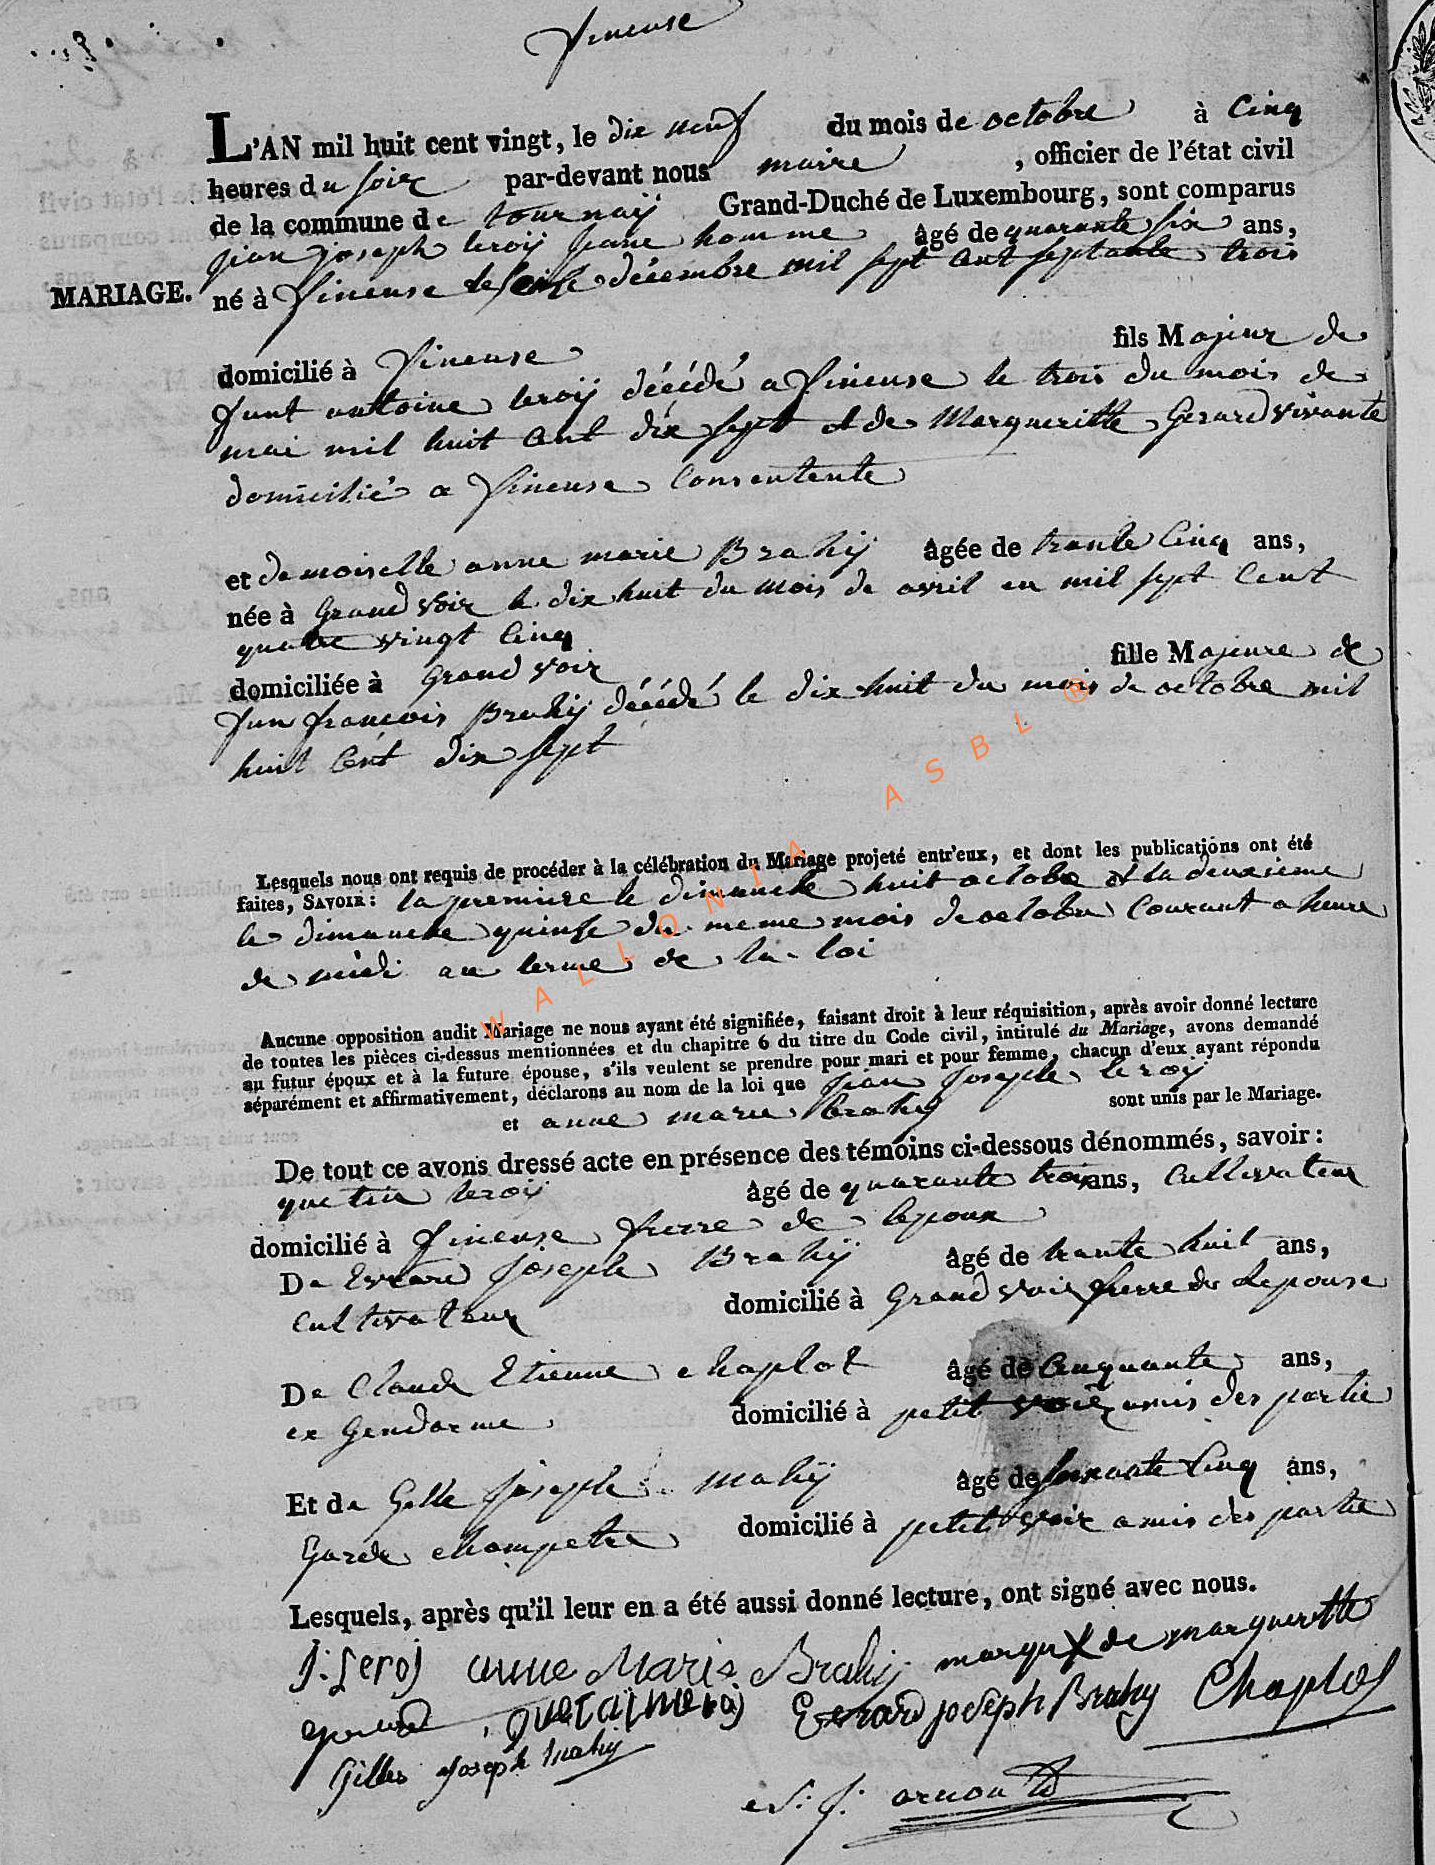 Fineuse
L'AN mil huit cent vingt, le dix neuf du mois de octobre à Cinq
heures du soir par-devant nous maire , officier de l'état civil
de la commune de tournay Grand-Duché de Luxembourg, sont comparus
jean joseph leroÿ jeune homme âgé de quarante six ans,
MARIAGE. né à fineuse le seise décembre mil sept cent septante trois
domicilié à fineuse fils Majeur de
funt antoine leroÿ décédé a fineuse le trois du mois de
mai mil huit cent dix sept et de Margueritte Gerard vivante
domicilié a fineuse Consentente
et demoiselle anne marie Brahÿ âgée de trante Cinq ans,
née à Grand voir le dix huit du mois de avril en mil sept Cent
quatre vingt Cinq
domiciliée à Grand voir fille Majeure de
fun françois Brahÿ décédé le dix huit du mois de octobre mil
huit Cent dix sept
Lesquels nous ont requis de procéder à la célébration du Mariage projeté entr'eux, et dont les publications ont été
faites, SAVOIR: la premiere le dimanche huit octobre et la deuxieme
le dimanche quinse du meme mois de octobre Courant a heure
de midi au terme de la loi
Aucune opposition audit Mariage ne nous ayant été signifiée, faisant droit à leur réquisition, après avoir donné lecture
de toutes les pièces ci-dessus mentionnées et du chapitre 6 du titre du Code civil, intitulé du Mariage, avons demandé
au futur époux et à la future épouse, s'ils veulent se prendre pour mari et pour femme, chacun d'eux ayant répondu
séparément et affirmativement, déclarons au nom de la loi que jean joseph leroy
et anne marie brahy sont unis par le Mariage.
De tout ce avons dressé acte en présence des témoins ci-dessous dénommés, savoir:
quetin leroÿ âgé de quarante trois ans, Cultivateur
domicilié à fineuse frere de lepoux
De Evrard joseph Brahÿ âgé de trante huit ans,
Cultivateur domicilié à Grand voir frere de Lepouse
De Claude Etienne chaplot âgé de Cinquante ans,
ex Gendarme domicilié à petit voir amis des partie
Et de Gille joseph mahÿ âgé de soixante Cinq ans,
Garde champetre domicilié à petit voir amis des partie
Lesquels, après qu'il leur en a été aussi donné lecture, ont signé avec nous.
j: leroj anne Marie Brahÿ marque X de marguerette
gerard Evrard joseph Brahy Chaplot
Gilles Joseph mahy
arnould
WALLONIA ASBL ®